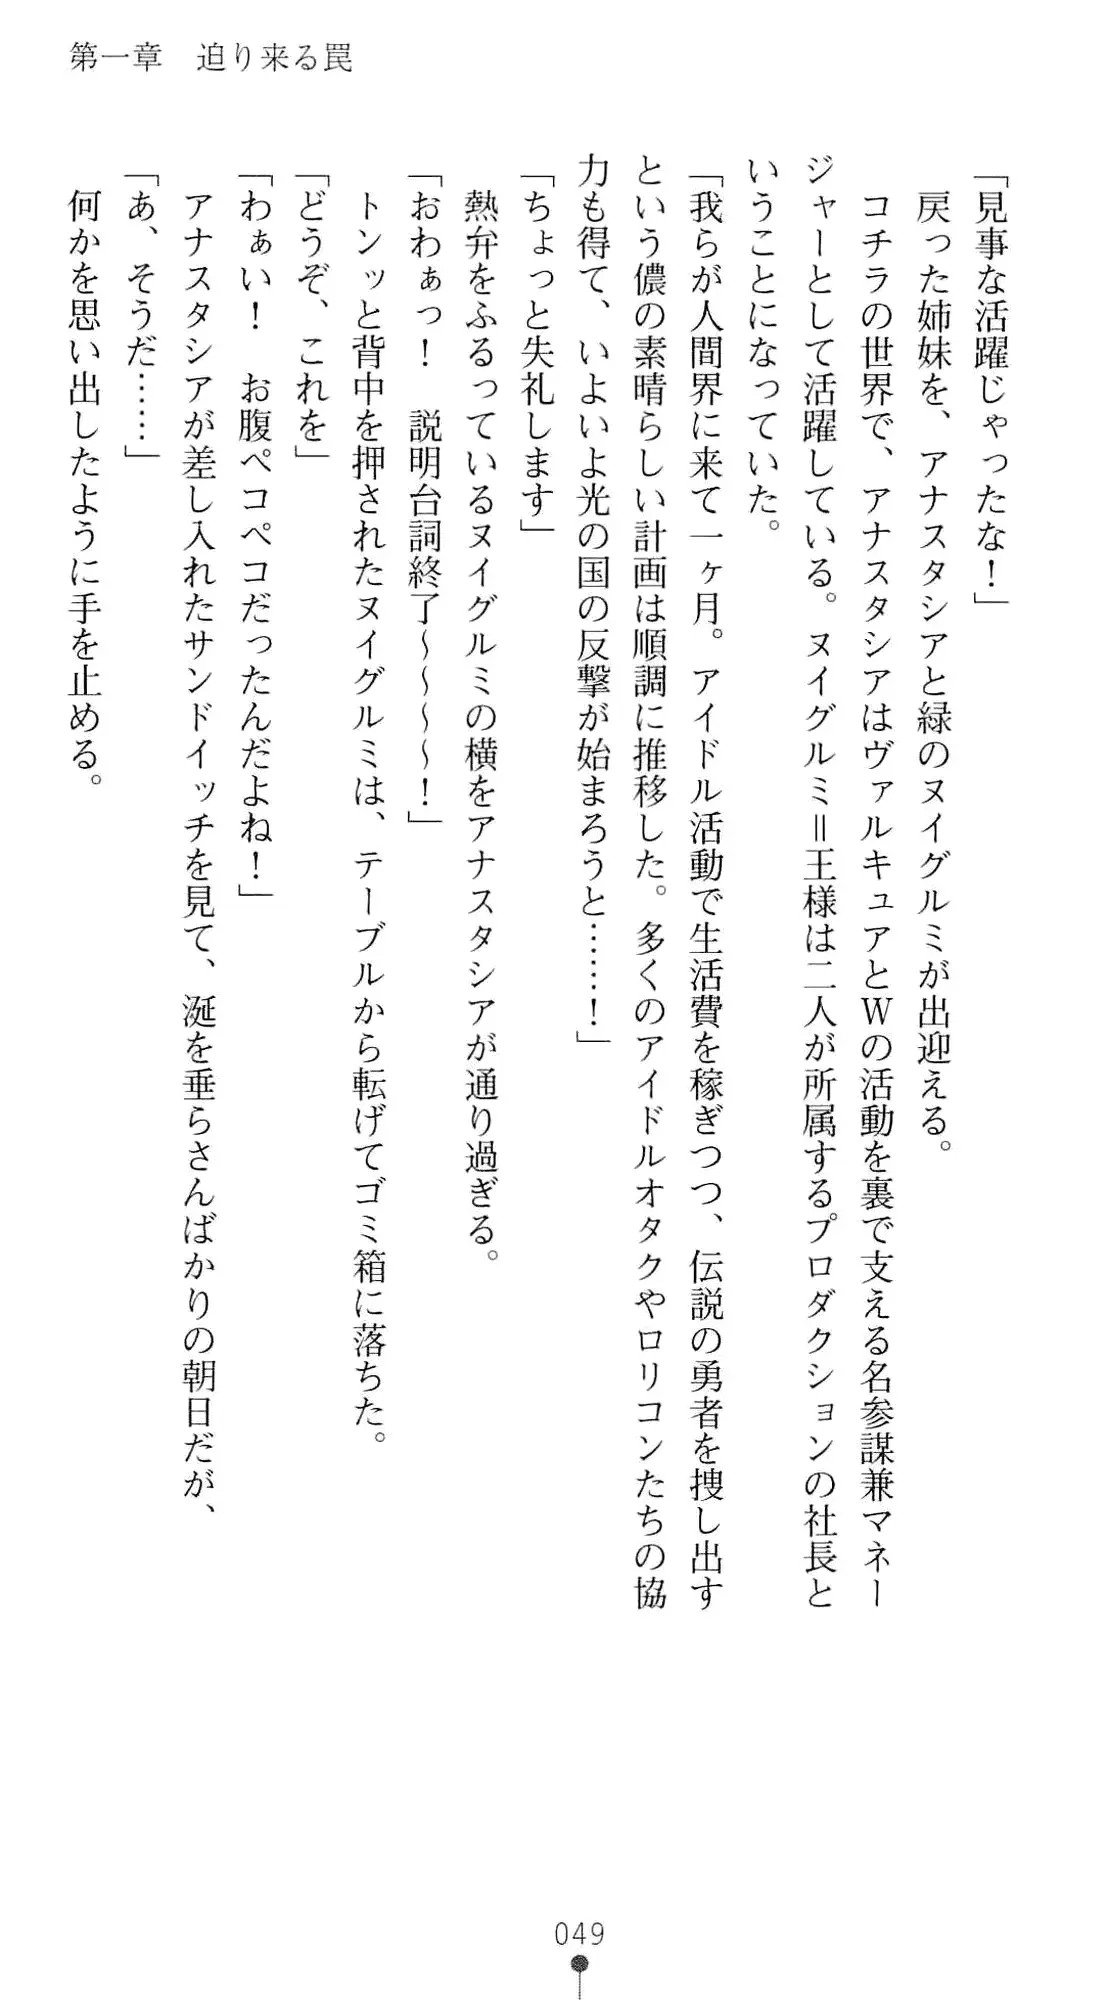 第一章　迫り来る罠
「見事な活躍じゃったな！」
　戻った姉妹を、アナスタシアと緑のヌイグルミが出迎える。
　コチラの世界で、アナスタシアはヴァルキュアとWの活動を裏で支える名参謀兼マネー
ジャーとして活躍している。ヌイグルミ＝王様は二人が所属するプロダクションの社長と
いうことになっていた。
「我らが人間界に来て一ヶ月。アイドル活動で生活費を稼ぎつつ、伝説の勇者を捜し出す
という儂の素晴らしい計画は順調に推移した。多くのアイドルオタクやロリコンたちの協
力も得て、いよいよ光の国の反撃が始まろうと……！」
「ちょっと失礼します」
　熱弁をふるっているヌイグルミの横をアナスタシアが通り過ぎる。
「おわぁっ！　説明台詞終了～～～～！」
　トンッと背中を押されたヌイグルミは、テーブルから転げてゴミ箱に落ちた。
「どうぞ、これを」
「わぁい！　お腹ペコペコだったんだよね！」
　アナスタシアが差し入れたサンドイッチを見て、涎を垂らさんばかりの朝日だが、
「あ、そうだ……」
　何かを思い出したように手を止める。
049